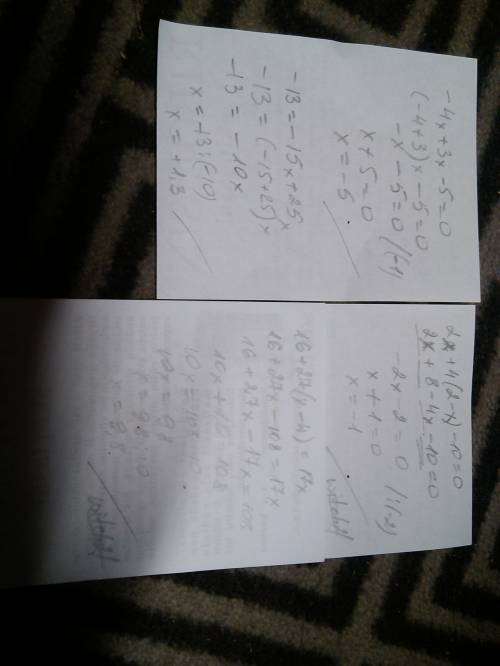 -4x+3x-5=0
(-4+3)x-5=0
-x-5=0 /(-1)
x+5=0
x=-5
-13=-15x+25x
-13=(-15+25)x
-13=-10x
x=-13:(-10)
x=+1,3
2x+4(2-x)-10=0
2x+8-4x-10=0
-2x-2=0 /:(-2)
x+1=0
x=-1
16+27(x-4)=17x
16+27x-108=17x
16+27x-17x=108
10x+16=108
10x=108-10
10x=98
x=98:10
x=9,8